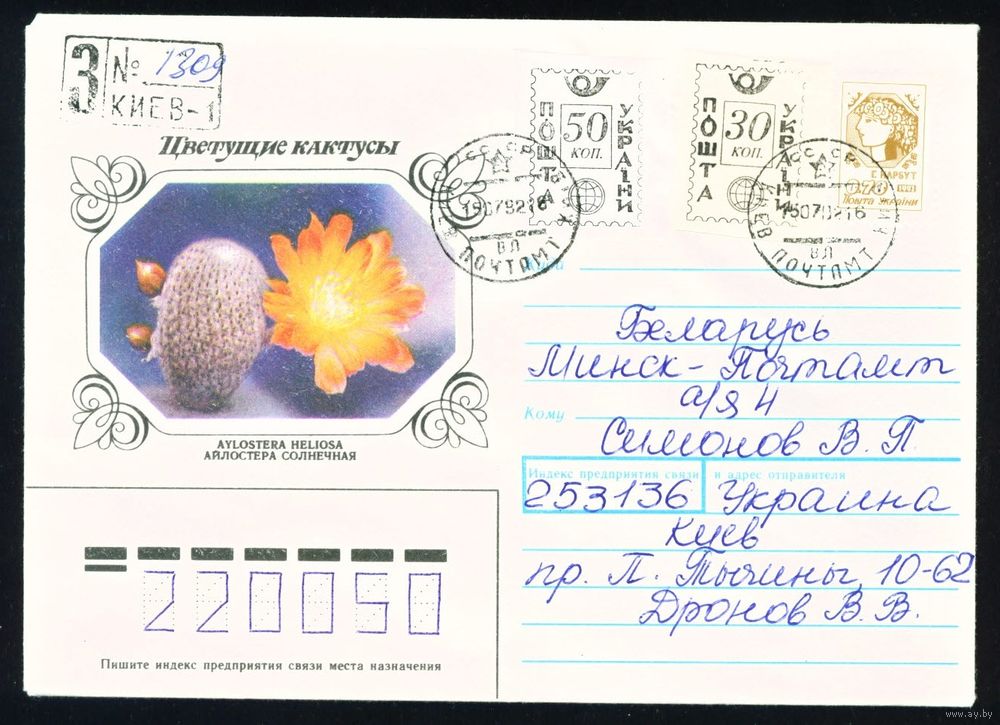 З № 1309
КИЕВ-1
Цветущие кактусы
AYLOSTERA HELIOSA
АЙЛОСТЕРА СОЛНЕЧНАЯ
ПОШТА 50 КОП. УКРАЇНИ
ПОШТА 30 КОП. УКРАЇНИ
Г. НАРБУТ
Пошта України
СССР
ПОЧТАМТ
ВЛ
СССР
КИЕВ
ПОЧТАМТ
ВЛ
Куда
Беларусь
Минск-Почтамт
а/я 4
Кому
Симонов В. П.
Индекс предприятия связи и адрес отправителя
253136 Украина
Киев
пр. П. Тычины, 10-62
Дронов В. В.
220050
Пишите индекс предприятия связи места назначения
www.ay.by